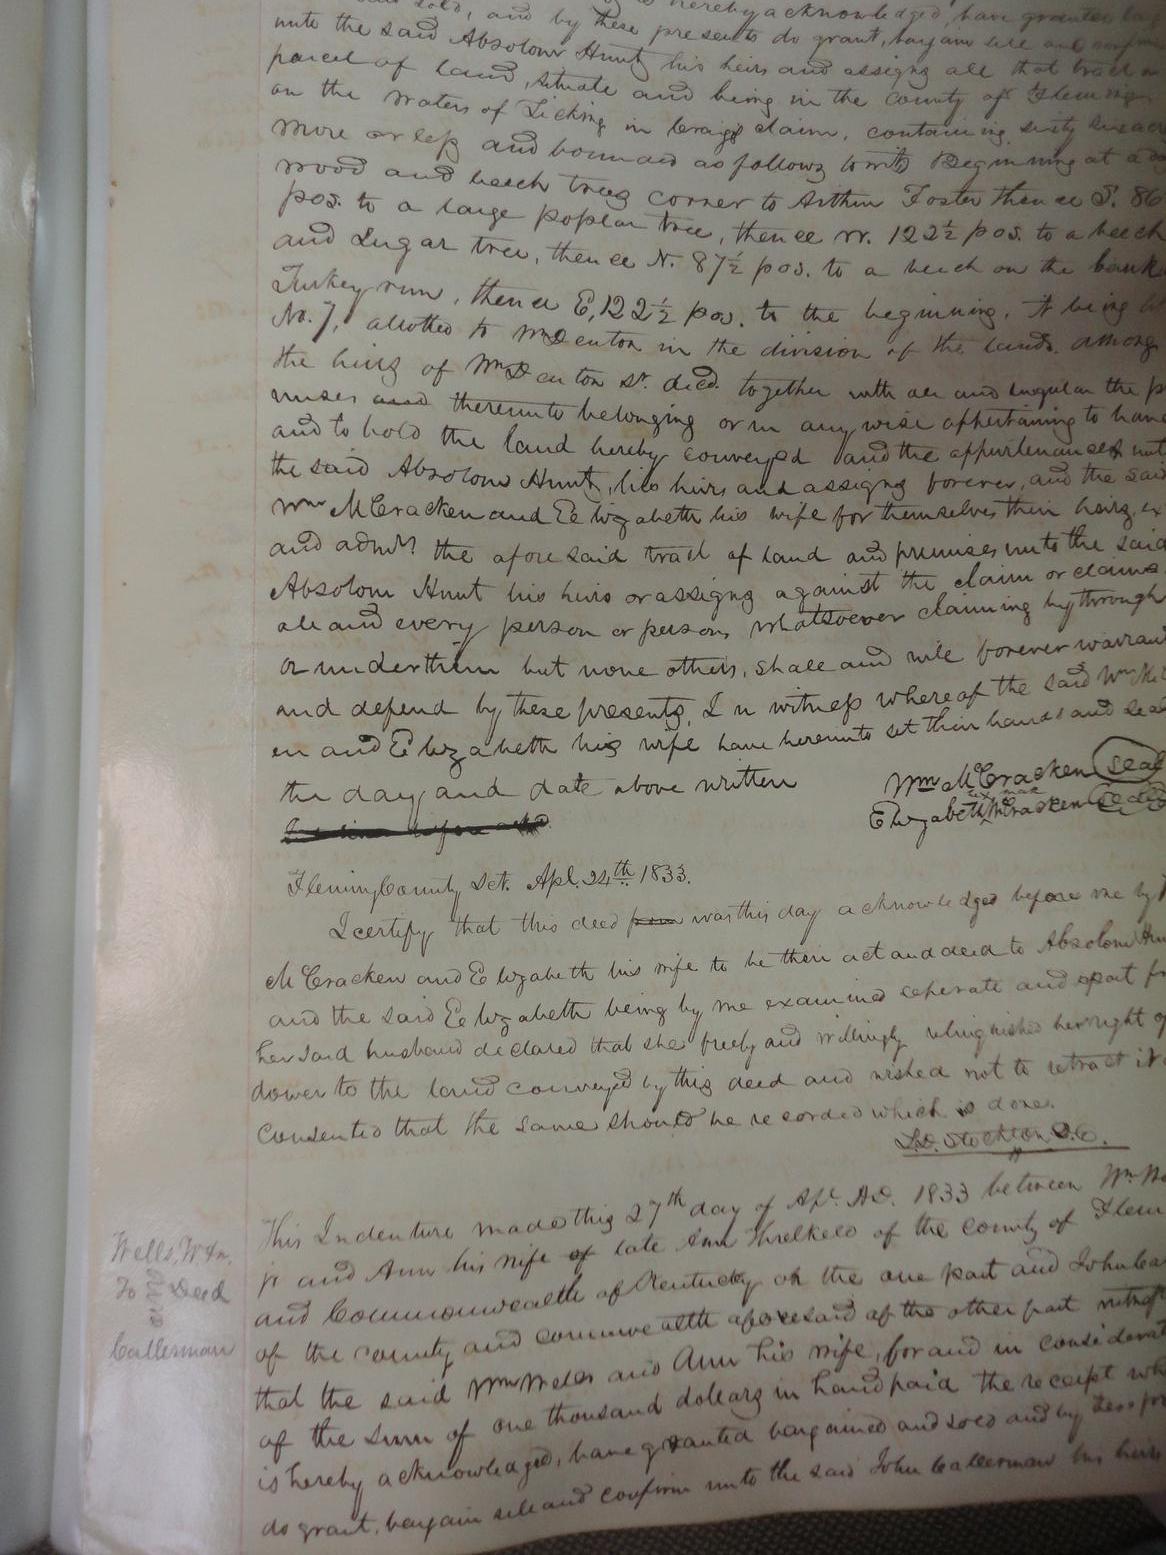 sold, and by these presents do grant, bargain sell and confirm
unto the said Absolom Hunt his heirs and assigns all that tract or
parcel of land, situate and being in the county of Fleming
on the waters of Licking in Craigs claim, containing sixty
more or less and bounded as follows towit, Beginning at a
wood and beech trees corner to Arthur Foster thence S. 86
pos. to a large poplar tree, thence W. 122½ pos. to a beech
and Sugar tree, thence N. 87½ pos. to a beech on the bank
Turkey run, thence E, 122½ pos. to the beginning, It being
No. 7, allotted to Wm Denton in the division of the lands among
the heirs of Wm Denton Sr. decd. together with all and singular the
mises and thereunto belonging or in any wise appertaining to have
and to hold the land hereby conveyed and the appurtenances unt
the said Absolom Hunt, his heirs and assigns forever, and the said
Wm McCracken and Elizabeth his wife for themselves their heirs, ex
and admrs the aforesaid tract of land and premises unto the said
Absolom Hunt his heirs or assigns against the claim or claims
all and every person or persons whatsoever claiming by through
or under them but none others, shall and will forever warrant
and defend by these presents, In witness whereof the said Wm McC
en and Elizabeth his wife have hereunto set their hands and seal
the day and date above written
Wm McCracken seal
Elizabeth McCracken seal
Fleming County Sct. Apl. 24th 1833.
I certify that this deed was this day acknowledged before me by
McCracken and Elizabeth his wife to be their act and deed to Absolom Hun
and the said Elizabeth being by me examined seperate and apart fr
her said husband declared that she freely and willingly relinquished her right of
dower to the land conveyed by this deed and wished not to retract it
consented that the same should be recorded which is done.
L.D. Stockton D.C.
This Indenture made this 27th day of Apl. AD. 1833 between Wm
jr and Ann his wife of late Ann Threlkeld of the county of Flem
and Commonwealth of Kentucky of the one part and John Ca
of the county and commonwealth aforesaid of the other part
that the said Wm Wells and Ann his wife, for and in considerat
of the sum of one thousand dollars in hand paid the receipt wh
is hereby acknowledged, have granted bargained and sold and by these pr
do grant, bargain sell and confirm unto the said John Callerman his heirs
Wells, Wm.
To Deed
Callerman